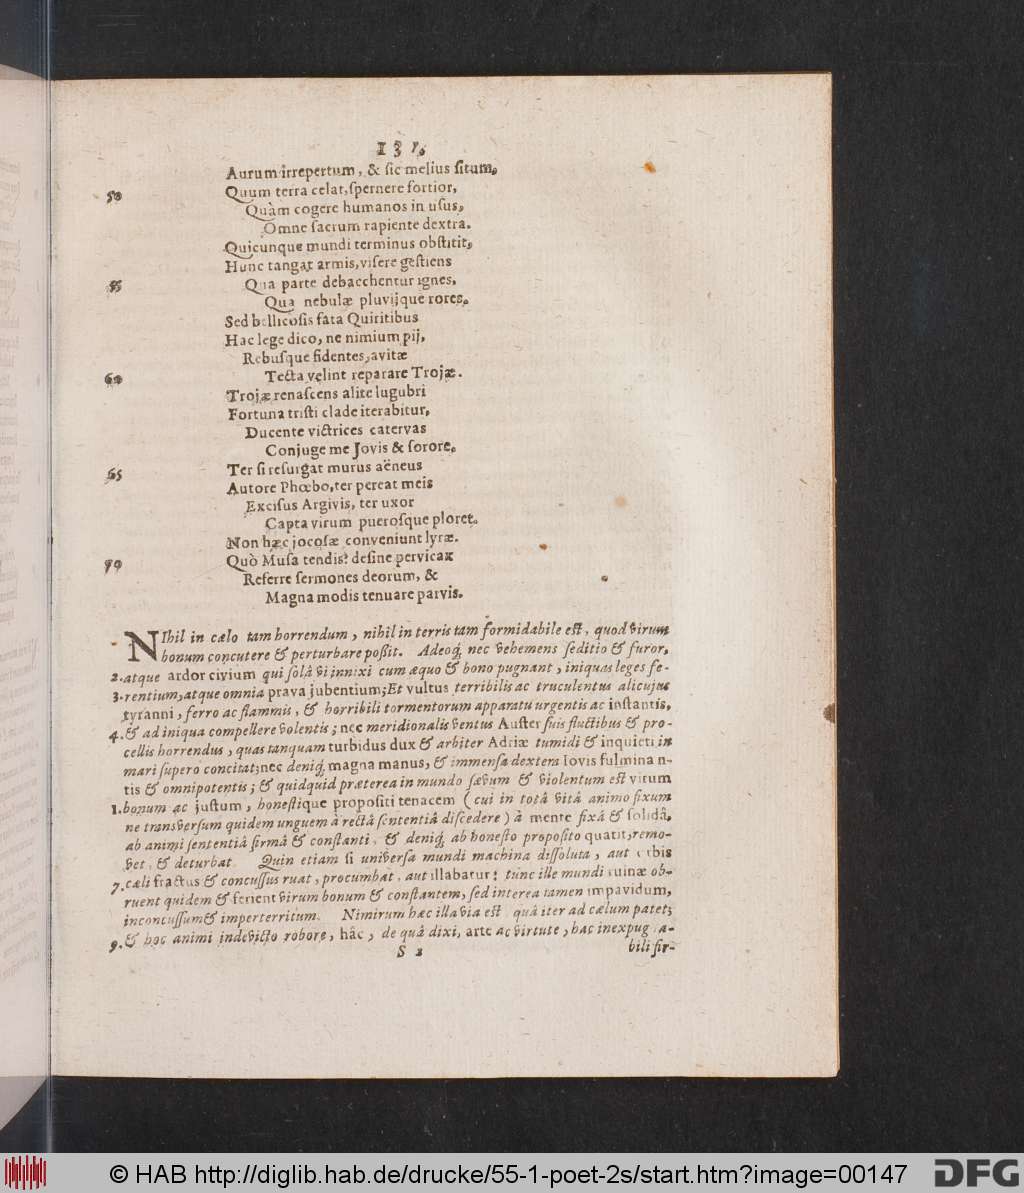 131.
Aurum irrepertum, & sic melius situm,
50 Quum terra celat, spernere fortior,
Quàm cogere humanos in usus,
Omne sacrum rapiente dextra.
Quicunque mundi terminus obstitit,
Hunc tangat armis, visere gestiens
55 Qua parte debacchentur ignes,
Qua nebulæ pluvijque rores.
Sed bellicosis fata Quiritibus
Hac lege dico, ne nimium pij,
Rebusque fidentes, avitæ
60 Tecta velint reparare Trojæ.
Trojæ renascens alite lugubri
Fortuna tristi clade iterabitur,
Ducente victrices catervas
Conjuge me Jovis & sorore.
65 Ter si resurgat murus aëneus
Autore Phœbo, ter pereat meis
Excisus Argivis, ter uxor
Capta virum puerosque ploret.
Non hæc jocosæ conveniunt lyræ.
70 Quò Musa tendis? desine pervicax
Referre sermones deorum, &
Magna modis tenuare parvis.
NIhil in cælo tam horrendum, nihil in terris tam formidabile est, quod virum
bonum concutere & perturbare poßit. Adeoq; nec vehemens seditio & furor,
2. atque ardor civium qui solâ vi innixi cum æquo & bono pugnant, iniquas leges fe-
3. rentium, atque omnia prava jubentium; Et vultus terribilis ac truculentus alicujus
tyranni, ferro ac flammis, & horribili tormentorum apparatu urgentis ac instantis,
4. & ad iniqua compellere volentis; nec meridionalis ventus Auster suis fluctibus & pro-
cellis horrendus, quas tanquam turbidus dux & arbiter Adriæ tumidi & inquieti in
mari supero concitat; nec deniq; magna manus, & immensa dextera Iovis fulmina n-
tis & omnipotentis; & quidquid præterea in mundo sævum & violentum est virum
1. bonum ac justum, honestique propositi tenacem (cui in totâ vitâ animo fixum
ne transversum quidem unguem à rectâ sententiâ discedere) à mente fixâ & solidâ,
ab animi sententiâ firmâ & constanti, & deniq; ab honesto proposito quatit, remo-
vet, & deturbat. Quin etiam si universa mundi machina dissoluta, aut orbis
7. cæli fractus & concussus ruat, procumbat, aut illabatur: tunc ille mundi ruinæ ob-
ruent quidem & ferient virum bonum & constantem, sed interea tamen impavidum,
inconcussum & imperterritum. Nimirum hæc illa via est quâ iter ad cælum patet;
9. & hoc animi indevicto robore, hâc, de quâ dixi, arte ac virtute, hac inexpug a-
S 2 bili fir-
© HAB http://diglib.hab.de/drucke/55-1-poet-2s/start.htm?image=00147
DFG